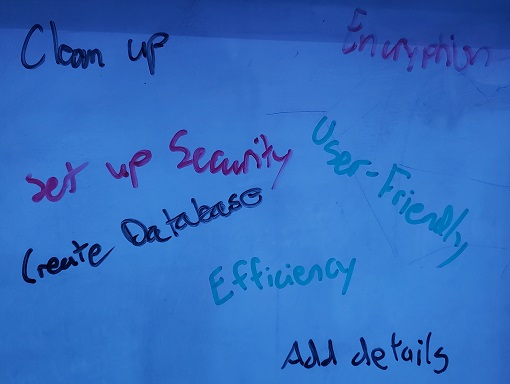 Clean up
Encryption
Set up Security
User-Friendly
Create Database
Efficiency
Add details